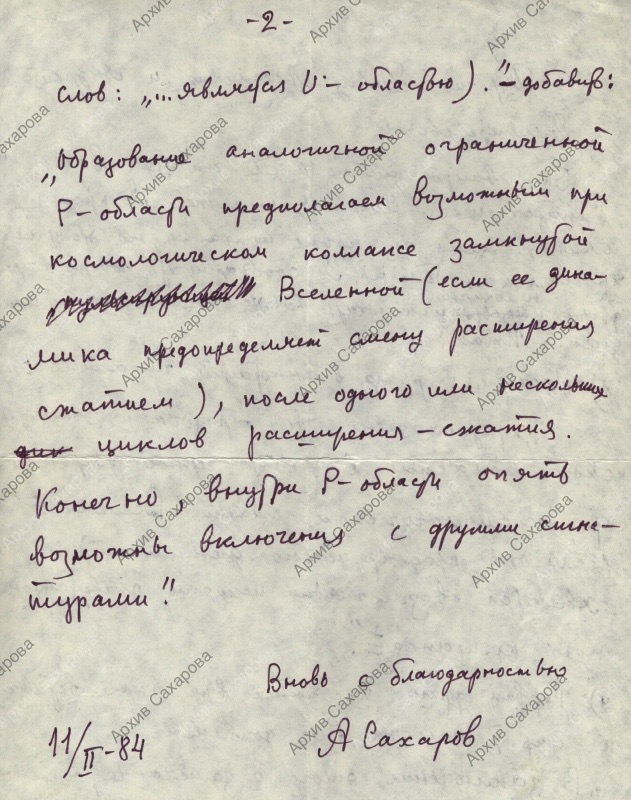 -2-
слов: „...является U – областью)." – добавив:
„Образование аналогичной ограниченной
P – области предполагаем возможным при
космологическом коллапсе замкнутой
Вселенной (если ее дина-
мика предопределяет смену расширения
сжатием), после одного или нескольких
цик циклов расширения – сжатия.
Конечно, внутри P – области опять
возможны включения с другими сигна-
турами".
Вновь с благодарностью
А Сахаров
11/II-84
Архив Сахарова